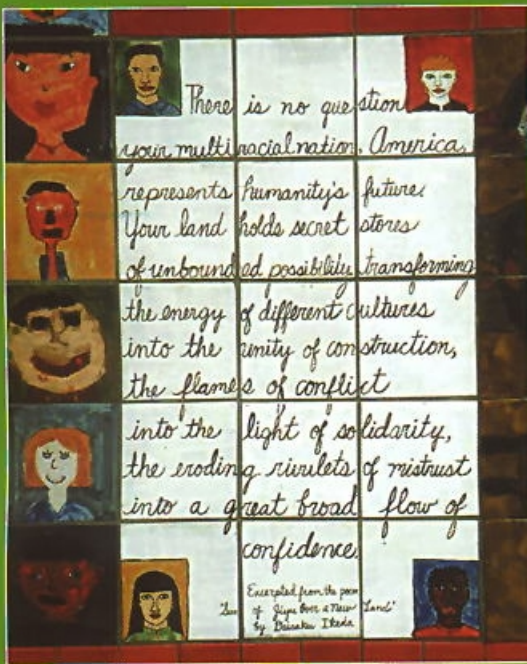 There is no question
your multiracial nation, America,
represents humanity's future.
Your land holds secret stores
of unbounded possibility, transforming
the energy of different cultures
into the unity of construction,
the flames of conflict
into the light of solidarity,
the eroding rivulets of mistrust
into a great broad flow of
confidence.
Excerpted from the poem
"Sun of Jiyu Over a New Land"
by Daisaku Ikeda